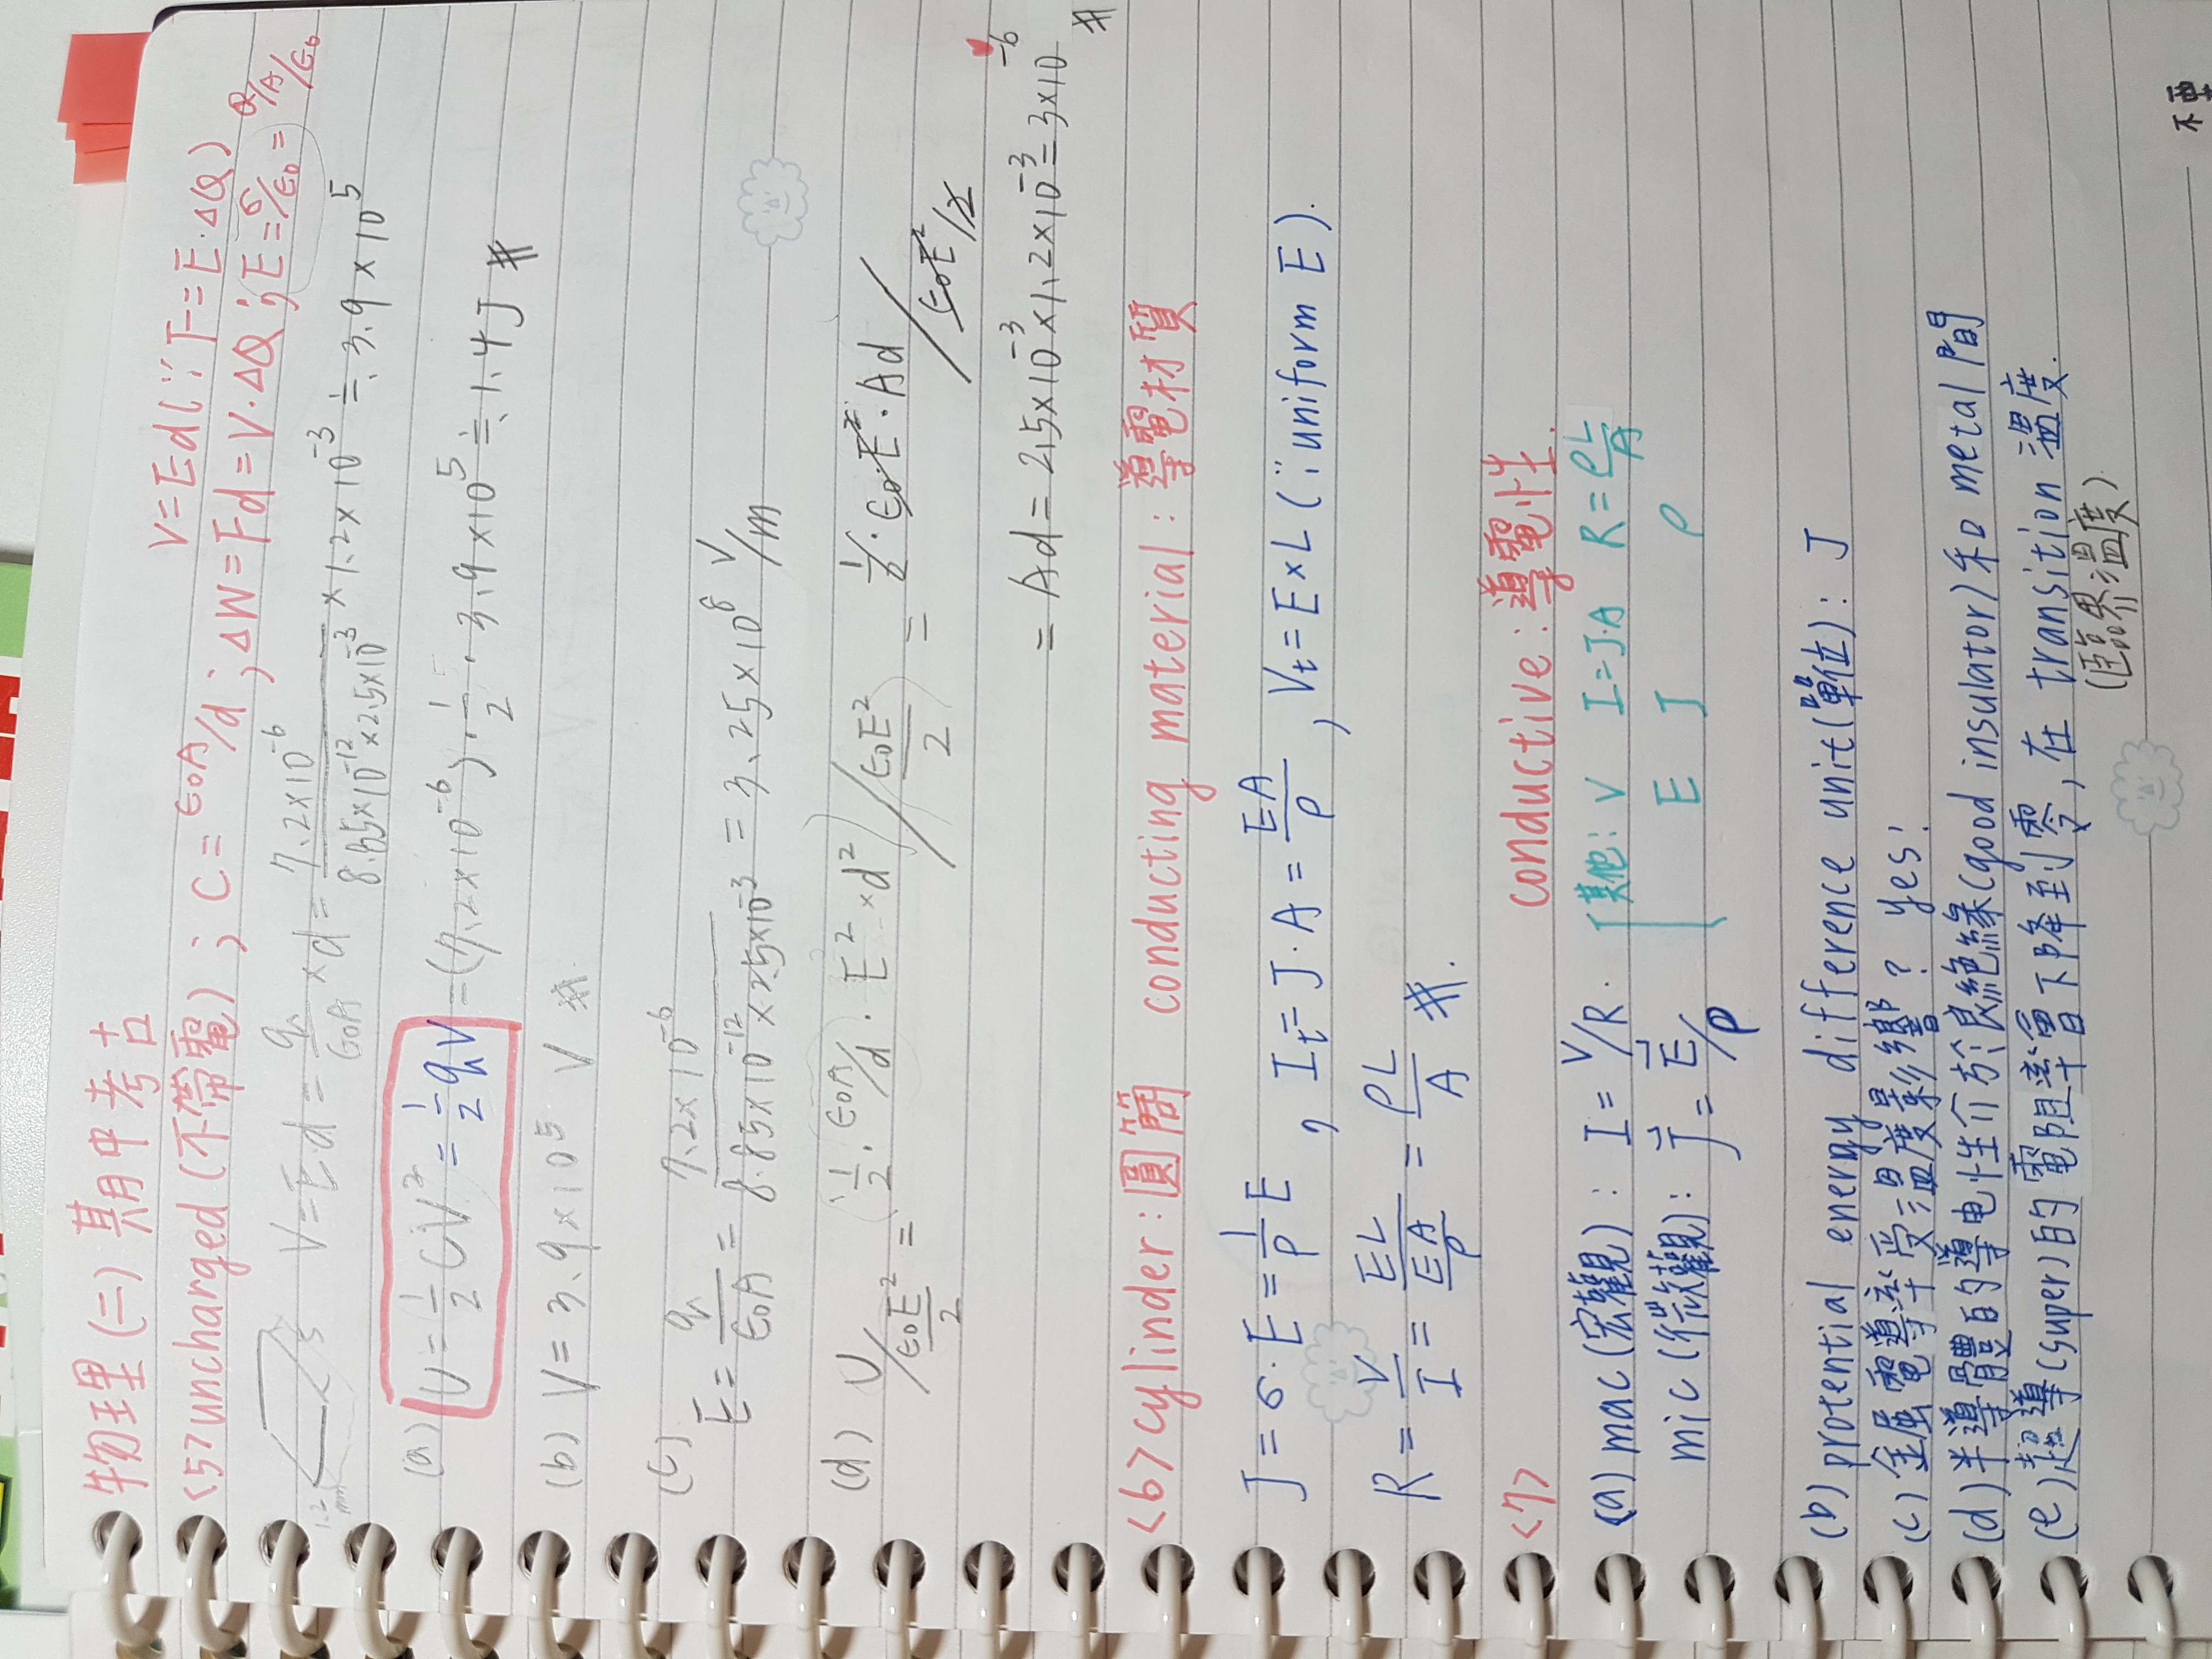 物理(二)期中考古
V=Ed(∵F=E·ΔQ)
<5>uncharged(不帶電); C=ε₀A/d; ΔW=Fd=V·ΔQ; E=σ/ε₀=Q/A/ε₀
1.2 mm V=Ed=q/ε₀A×d=7.2×10⁻⁶/8.85×10⁻¹²×2.5×10⁻³×1.2×10⁻³≒3.9×10⁵
(a) U=1/2CV²=1/2qV=(7.2×10⁻⁶)·1/2·3.9×10⁵≒1.4J #
(b) V=3.9×10⁵ V #
(c) E=q/ε₀A=7.2×10⁻⁶/8.85×10⁻¹²×2.5×10⁻³=3.25×10⁸ V/m
(d) U/ε₀E²/2=(1/2·ε₀A/d·E²×d²)/(ε₀E²/2)=1/2·ε₀·E²·Ad/ε₀E²/2
=Ad=2.5×10⁻³×1.2×10⁻³=3×10⁻⁶ #
<6>cylinder:圓筒 conducting material:導電材質
J=σ·E=1/ρE, It=J·A=EA/ρ, Vt=E×L(∵uniform E).
R=V/I=EL/EA/ρ=ρL/A #.
<7> conductive:導電性.
(a) mac(宏觀): I=V/R. 其他: V I=J·A R=ρL/A
mic(微觀): J⃗=E⃗/ρ E J ρ
(b) protential energy difference unit(單位): J
(c) 金屬電導率受溫度影響? yes!
(d) 半導體的導电性介於良絕緣(good insulator)和metal間
(e) 超導(super)的電阻率會下降到零,在 transition 溫度.
(臨界溫度)